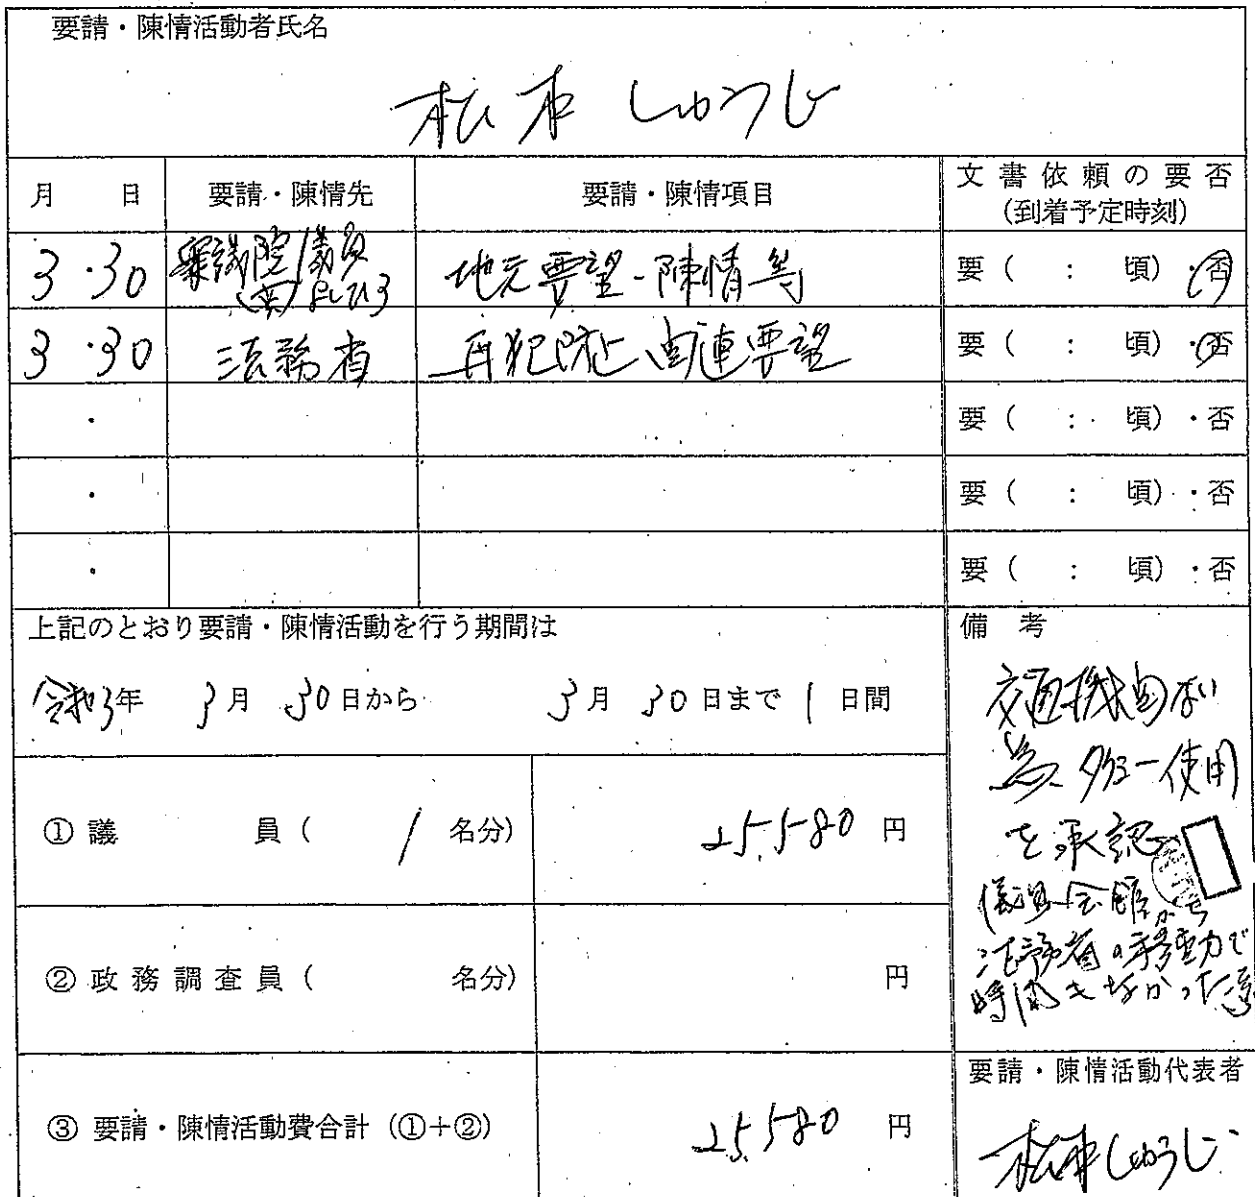 要請・陳情活動者氏名
松本 しゅうじ
月 日 要請・陳情先 要請・陳情項目 文書依頼の要否
(到着予定時刻)
3・30 衆議院議員 地元要望・陳情等 要 ( : 頃) ・否
3・30 法務省 再犯防止関連要望 要 ( : 頃) ・否
・ 要 ( : 頃) ・否
・ 要 ( : 頃) ・否
・ 要 ( : 頃) ・否
上記のとおり要請・陳情活動を行う期間は
令和3年 3月 30日から 3月 30日まで 1日間
① 議 員 ( 1 名分) 25,580 円
② 政務調査員 ( 名分) 円
③ 要請・陳情活動費合計 (①+②) 25,580 円
備 考
交通機関ない
為、タクシー使用
を承認
議員会館から
法務省の移動で
時間なかった為
要請・陳情活動代表者
松本しゅうじ